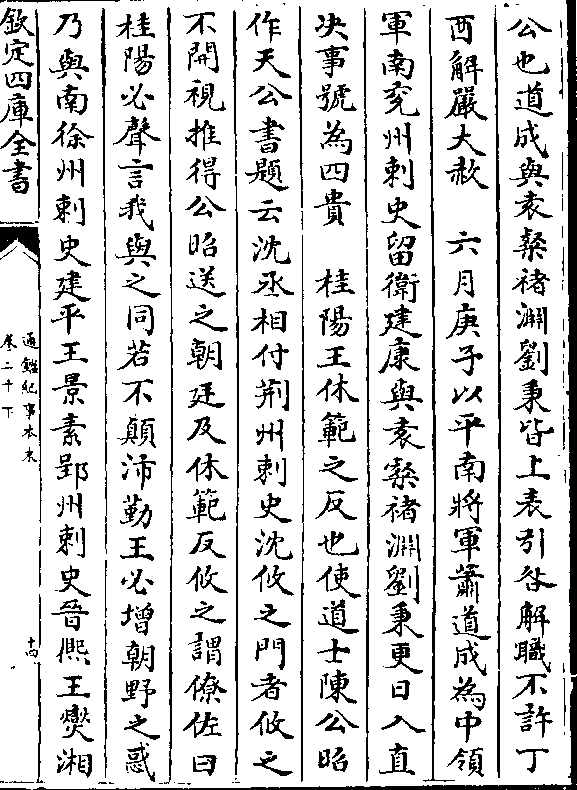 公也道成與袁粲禇淵劉秉皆上表引咎解職不許丁
酉解嚴大赦　六月庚子以平南將軍蕭道成為中領
軍南兗州刺史留衛建康與袁粲禇淵劉秉更日入直
决事號為四貴　桂陽王休範之反也使道士陳公昭
作天公書題云沈丞相付荆州刺史沈攸之門者攸之
不開視推得公昭送之朝廷及休範反攸之謂僚佐曰
桂陽必聲言我與之同若不顛沛勤王必增朝野之惑
乃與南徐州刺史建平王景素郢州刺史晉熈王燮湘
欽定四庫全書
通鑑紀事本末
卷二十下
十四